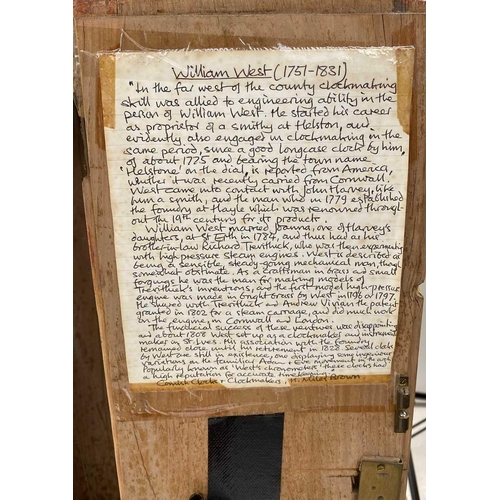 William West (1751-1831)
"In the far west of the county clockmaking
skill was allied to engineering ability in the
person of William West. He started his career
as proprietor of a smithy at Helston, and
evidently also engaged in clockmaking in the
same period, since a good longcase clock by him,
of about 1775 and bearing the town name
'Helstone' on the dial, is reported from America,
whither it was recently carried from Cornwall.
West came into contact with John Harvey, like
him a smith, and the man who in 1779 established
the foundry at Hayle which was renowned through-
out the 19th century for its products.
William West married Joanna, one of Harvey's
daughters, at St Erth in 1784, and thus had as his
brother-in-law Richard Trevithick, who was then experimenting
with high pressure steam engines. West is described as
being a sensible, steady-going mechanical man, though
somewhat obstinate. As a craftsman in brass and small
forgings he was the man for making models of
Trevithick's inventions, and the first model high-pressure
engine was made in bright brass by West in 1796 or 1797.
He shared with Trevithick and Andrew Vivian the patent
granted in 1802 for a steam carriage, and did much work
on the engine, in Cornwall and London.
The financial success of these ventures was disappointing
and about 1808 West set up as a clockmaker and instrument
maker in St Ives. His association with the foundry
remained close until his retirement in 1828. Several clocks
by West are still in existence, one displaying some ingenious
variations on the familiar Adam & Eve movement in the arch.
Popularly known as 'West's chronometers' these clocks had
a high reputation for accurate time keeping."
Cornish Clocks & Clockmakers, H. Miles Brown